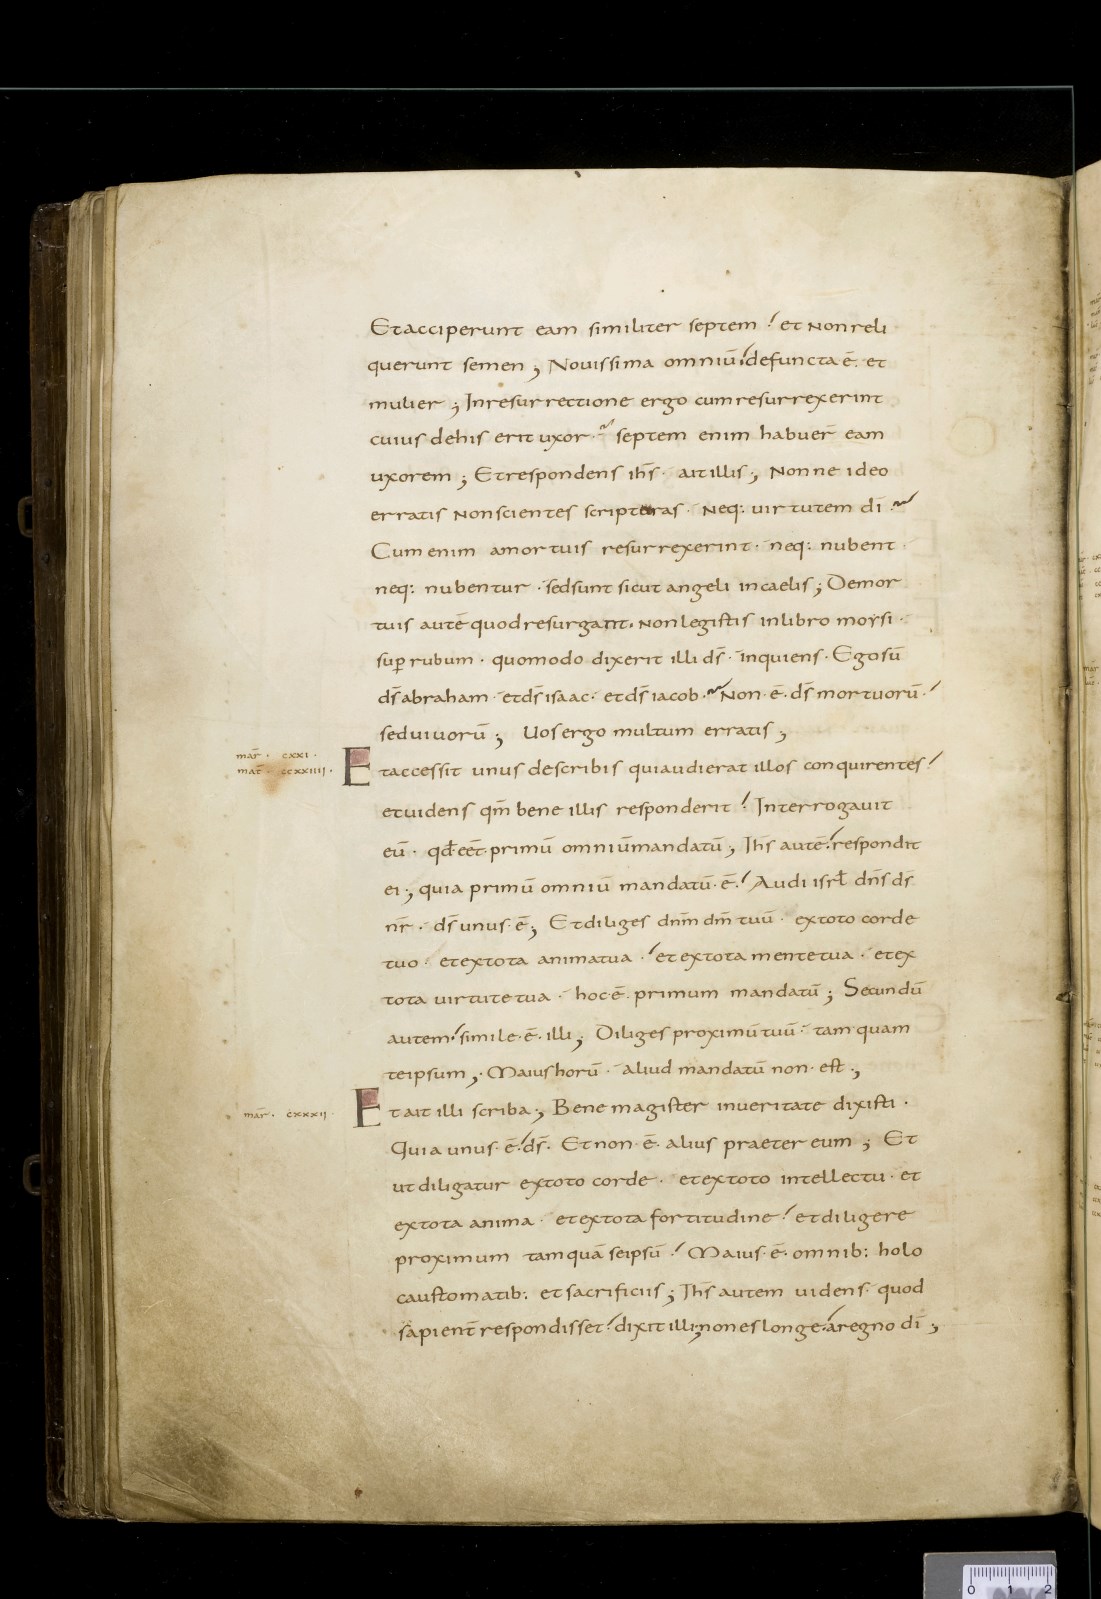 Et acciperunt eam similiter septem et non reli
querunt semen; Novissima omniū defuncta ē. et
mulier; In resurrectione ergo cum resurrexerint
cuius dehis erit uxor. septem enim habuer̄ eam
uxorem; Et respondens ih̄s. ait illis; Nonne ideo
erratis non scientes scripturas. neq: virtutem dī.
Cum enim amortuis resurrexerint. neq: nubent.
neq: nubentur. sed sunt sicut angeli in caelis; Demor
tuis autē quod resurgant. non legistis in libro moysi.
sup̄ rubum. quomodo dixerit illi ds̄. inquiens. Ego sū
ds̄ abraham. et ds̄ isaac. et ds̄ iacob. Non. ē. ds̄ mortuorū.
sed vivorū; Uos ergo multum erratis;
mar̄. cxxi.
mat̄. ccxxiiii.
Et accessit unus de scribis qui audierat illos conquirentes
et videns qm̄ bene illis responderit Interrogavit
eū. qd̄ eēt. primū omniū mandatū; Ih̄s autē. respondit
ei; quia primū omniū mandatū. ē. Audi isrl̄ dn̄s ds̄
nr̄. ds̄ unus. ē; Et diliges dn̄m dm̄ tuū. ex toto corde
tuo. et ex tota anima tua. et ex tota mente tua. et ex
tota virtute tua. hoc ē. primum mandatū; Secundū
autem. simile. ē. illi; Diliges proximū tuū. tam quam
te ipsum; Maius horū. aliud mandatū non. est.;
mar̄. cxxxii
Et ait illi scriba; Bene magister in veritate dixisti.
Quia unus. ē. ds̄. Et non. ē. alius praeter eum; Et
ut diligatur ex toto corde. et ex toto intellectu. et
ex tota anima. et ex tota fortitudine et diligere
proximum tam quā seipsū. Maius. ē. omnib: holo
caustomatib: et sacrificiis; Ih̄s autem videns. quod
sapient̄ respondisset. dixit illi; non es longe. a regno dī;
0 1 2